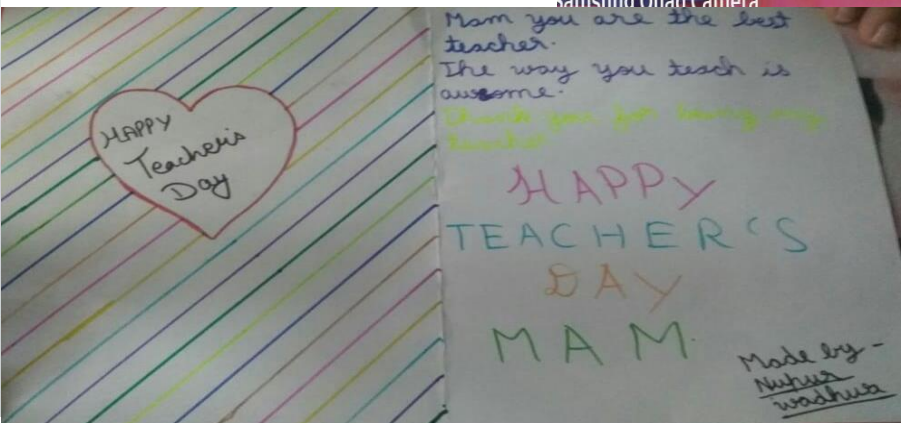 Samsung Quad Camera
HAPPY
Teacher's
Day
Mam you are the best
teacher.
The way you teach is
awesome.
Thank you for being my
teacher
HAPPY
TEACHER'S
DAY
MAM.
Made by -
Nupur
wadhwa